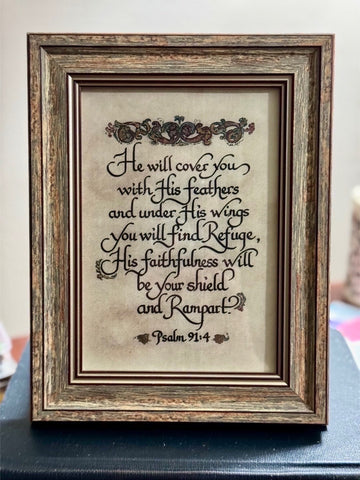 He will cover you
with His feathers
and under His wings
you will find Refuge,
His faithfulness will
be your shield
and Rampart.
Psalm 91:4